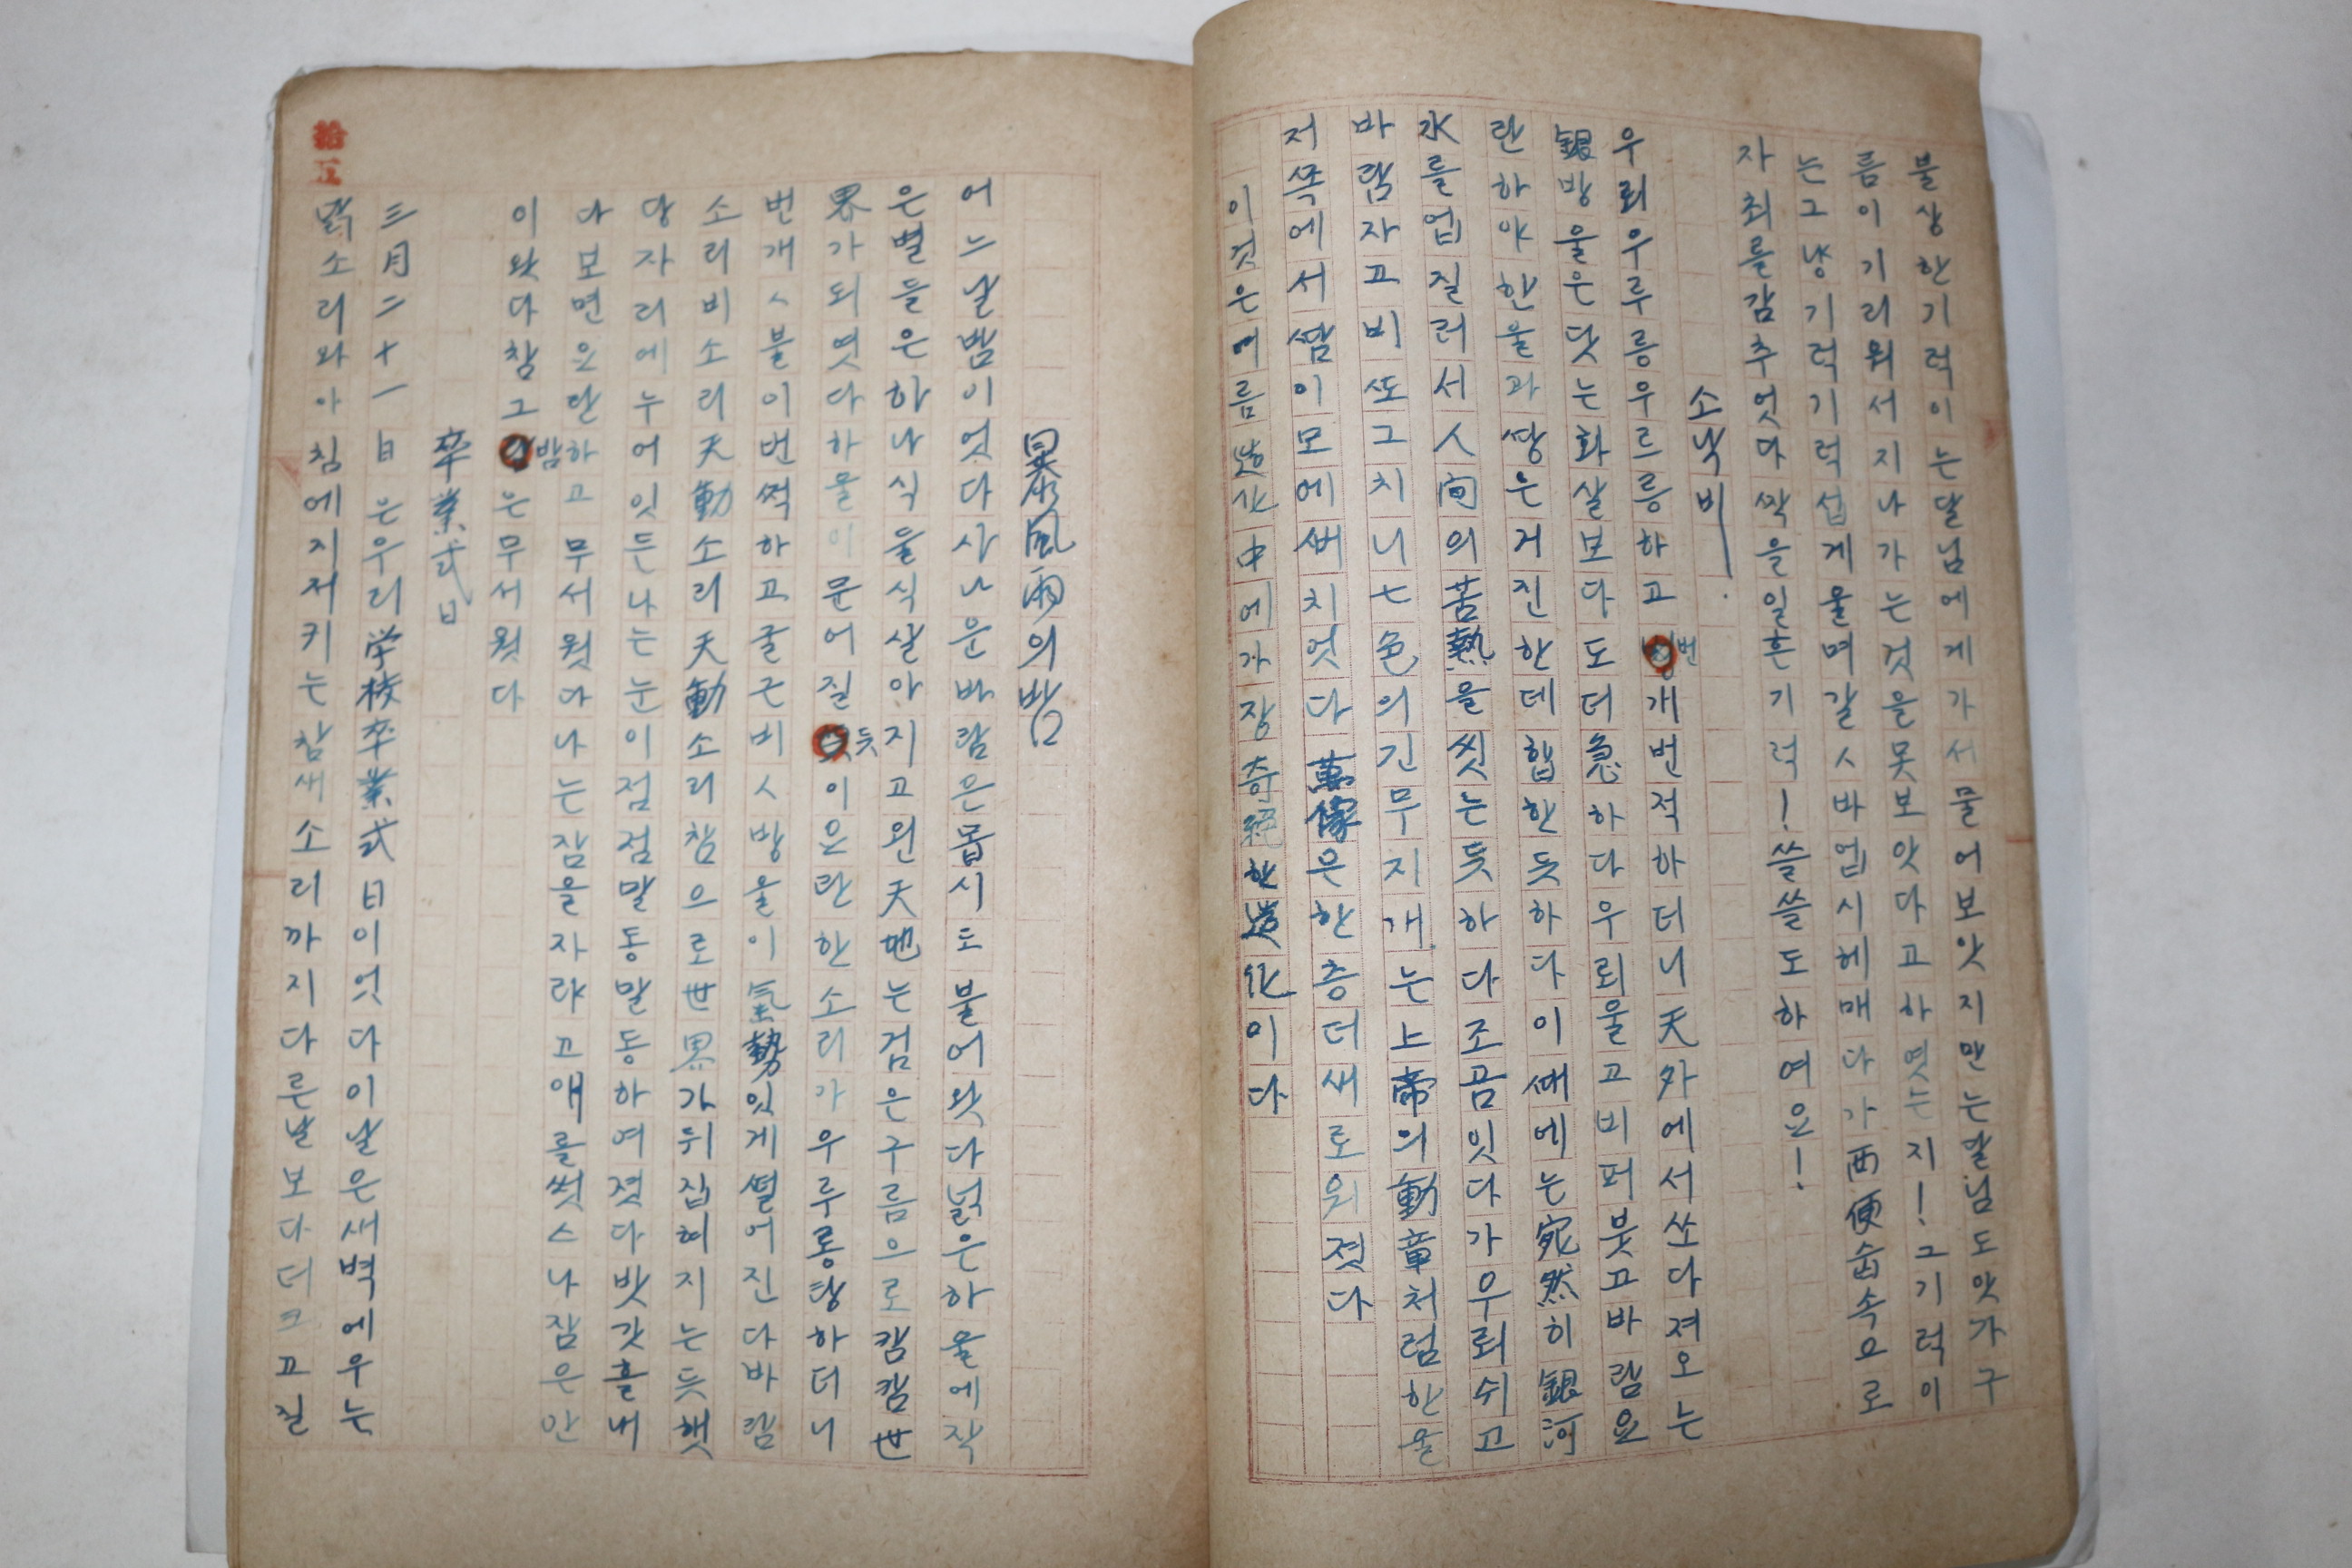 불상한기럭이는달님에게가서물어보앗지만는달님도얏가구
름이기리워서지나가는것을못보앗다고하엿는지!그기럭이
는그냥기럭기럭섭게울며갈ㅅ바업시헤매다가西便숩속으로
자최를감추엇다짝을일흔기럭!쓸쓸도하여요!
소낙비
우뢰우루릉우르릉하고번개번적하더니天外에서쏘다져오는
銀방울은닷는화살보다도더急하다우뢰울고비퍼붓고바람요
란하야한울과땅은거진한데합한듯하다이때에는宛然히銀河
水를업질러서人间의苦熱을씻는듯하다조곰잇다가우뢰쉬고
바람자고비또그치니七色의긴무지개는上帝의勳章처럼한울
저쪽에서쌈이모에써치엇다萬像은한층더새로워졋다
이것은여름造化中에가장奇絶한造化이다
暴風雨의밤
어느날밤이엇다사나운바람은몹시도불어왓다넑은하울에작
은별들은하나식둘식살아지고왼天地는검은구름으로캄캄世
界가되엿다하물이문어질듯이요란한소리가우루룽탕하더니
번개ㅅ불이번쩍하고굴근비ㅅ방울이氣勢잇게떨어진다바람
소리비소리天動소리天動소리참으로世界가뒤집혀지는듯햇
당자리에누어잇든나는눈이점점말동말동하여젓다밧갓흘내
다보면요란하고무서웟다나는잠을자랴고애를썻스나잠은안
이왓다참그밤은무서웟다
卒業式日
三月二十一日은우리学校卒業式日이엇다이날은새벽에우는
닭소리와아침에지저키는참새소리까지다른날보다더크고질
拾五